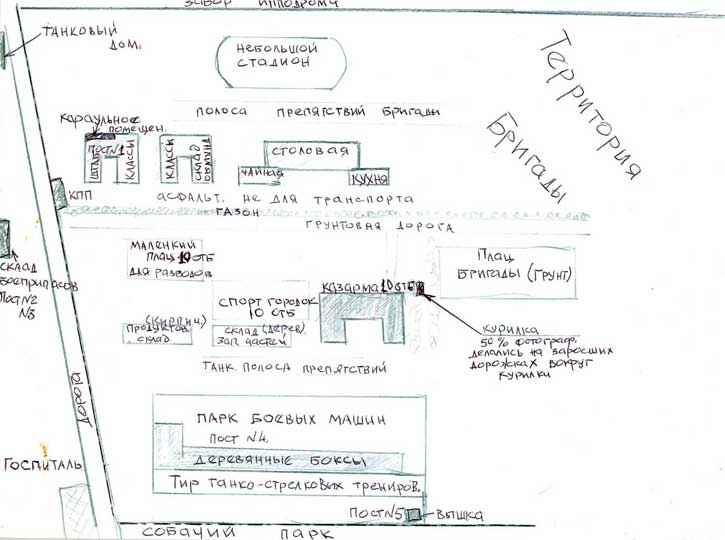 ЗАБОР ИППОДРОМА
ТАНКОВЫЙ
ДОМ.
НЕБОЛЬШОЙ
СТАДИОН
Территория
Бригады
ПОЛОСА ПРЕПЯТСТВИЙ БРИГАДЫ
КАРАУЛЬНОЕ
ПОМЕЩЕН.
ПОСТ №1
ШТАБ
КЛАССЫ
КЛАССЫ
СКЛАД
ОБМУНД.
СТОЛОВАЯ
ЧАЙНАЯ
КУХНЯ
КПП
АСФАЛЬТ. НЕ ДЛЯ ТРАНСПОРТА
ГАЗОН
ГРУНТОВАЯ ДОРОГА
СКЛАД
БОЕПРИПАСОВ
ПОСТ №2
№3
МАЛЕНКИЙ
ПЛАЦ 10 ОТБ
ДЛЯ РАЗВОДОВ
ПЛАЦ
БРИГАДЫ (ГРУНТ)
СПОРТ ГОРОДОК
10 ОТБ
КАЗАРМА 10 ОТБ
(КИРПИЧ.)
ПРОДУКТОВ.
СКЛАД
СКЛАД (ДЕРЕВ.)
ЗАП ЧАСТЕЙ
КУРИЛКА
50% ФОТОГРАФ.
ДЕЛАЛИСЬ НА ЗАРОСШИХ
ДОРОЖКАХ ВОКРУГ
КУРИЛКИ
ТАНК. ПОЛОСА ПРЕПЯТСТВИЙ
ДОРОГА
ПАРК БОЕВЫХ МАШИН
ПОСТ №4.
ДЕРЕВЯННЫЕ БОКСЫ
ТИР ТАНКО-СТРЕЛКОВЫХ ТРЕНИРОВ.
ГОСПИТАЛЬ
ПОСТ №5
ВЫШКА
СОБАЧИЙ ПАРК